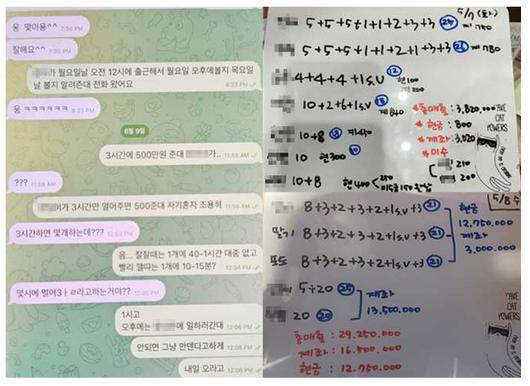 웅 맞아용^^ 7:50 PM
잘해요^^ 7:50 PM
가 월요일날 오전 12시에 출근해서 월요일 오후에볼지 목요일
날 볼지 알려준대 전화 왔어요 8:23 PM
웅 ㅋㅋㅋㅋㅋㅋ 8:23 PM
6월 9일
3시간에 500만원 준대 가.. 11:58 AM
??? 11:58 AM
이가 3시간만 열어주면 500준대 자기혼자 조용히
3시간하면 몇개하는데???
음... 잘잘때는 1개에 40-1시간 대중 없고
빨리 깰때는 1개에 10-15분? 12:04 PM
몇시에 열어3ㅏㄹ라고하는거야?? 12:05 PM
1시고
오후에는 에 일하러간대 12:06 PM
안되면 그냥 안된다고하게 12:06 PM
내일 오라고 12:06 PM
5/7 (화)
5+5+5+1+1+2+3+3 계 780
5+5+5+1+1+2+1+3+3 계 780
4+4+4+1s.v 12 현100
200
10+2+6+1s.v 계840
*총매출: 3,820,000
*현금: 800
*계좌: 3,020
*미수
210
200
10+8 18 계450
10 현300 10
10+8 현400
5/8 수
8+3+2+3+2+1s.v+3 21
딸기 8+3+2+3+2+1s.v+3 21
포도 8+3+2+3+2+1s.v+3 21
현금
12.750.000
계좌
3.000.000
5+20 25
20 20
계좌
13.500.000
총매출: 29.250.000
계좌: 16.500.000
현금: 12.750.000